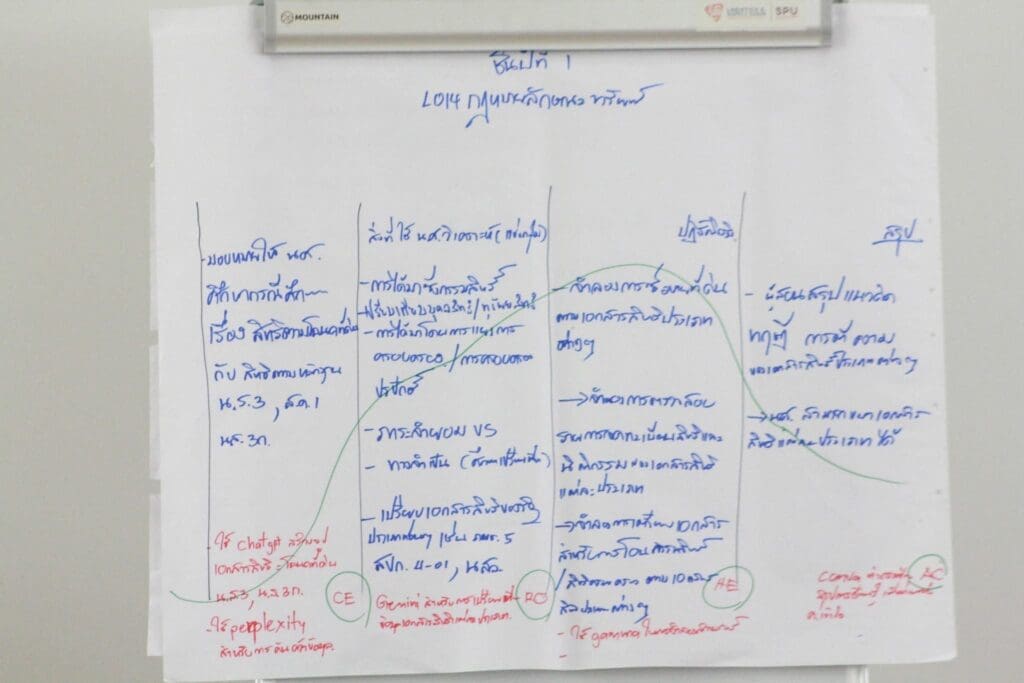 MOUNTAIN
SPU
ชั้นปีที่ 1
LO14 กฎหมายลักษณะทรัพย์
- มอบหมายให้ นศ.
ศึกษากรณีศึกษา
เรื่อง สิทธิตามโฉนดที่ดิน
กับ สิทธิตามหลักฐาน
น.ส.3, ส.ค.1
นส.3ก.
- ใช้ chatgpt สร้างรูป
เอกสารสิทธิ โฉนดที่ดิน
น.ส3, น.ส.3ก.
- ใช้ perplexity
สำหรับการค้นคว้าข้อมูล
CE
สิ่งที่ให้ นศ.วิเคราะห์ (แบ่งกลุ่ม)
- การได้มาซึ่งกรรมสิทธิ์
เปรียบเทียบบุคคลสิทธิ/ทรัพยสิทธิ
- การได้มาโดยการแย่งการ
ครอบครอง/การครอบครอง
ปรปักษ์
- ภาระจำยอม VS
- ทางจำเป็น
- เปรียบเอกสารสิทธิ
ประเภทต่างๆ เช่น ภบท. 5
สปก. 4-01, นสล.
Gemini สำหรับการเปรียบเทียบ
ข้อมูลเอกสารสิทธิแต่ละประเภท
RO
ปฏิบัติจริง
- จำลองการซื้อขายที่ดิน
ตามเอกสารสิทธิประเภท
ต่างๆ
→ จำลองการตรวจสอบ
รายการจดทะเบียนสิทธิและ
นิติกรรม ของเอกสารสิทธิ
แต่ละประเภท
→ จำลองการเตรียมเอกสาร
สำหรับการโอนกรรมสิทธิ์
/สิทธิครอบครอง ตามเอกสาร
สิทธิประเภทต่างๆ
AE
- ใช้
สรุป
- ผู้สอนสรุปแนวคิด
ทฤษฎี การตีความ
ของเอกสารสิทธิประเภทต่างๆ
→ นศ. สามารถแยกเอกสาร
สิทธิแต่ละประเภทได้
AC